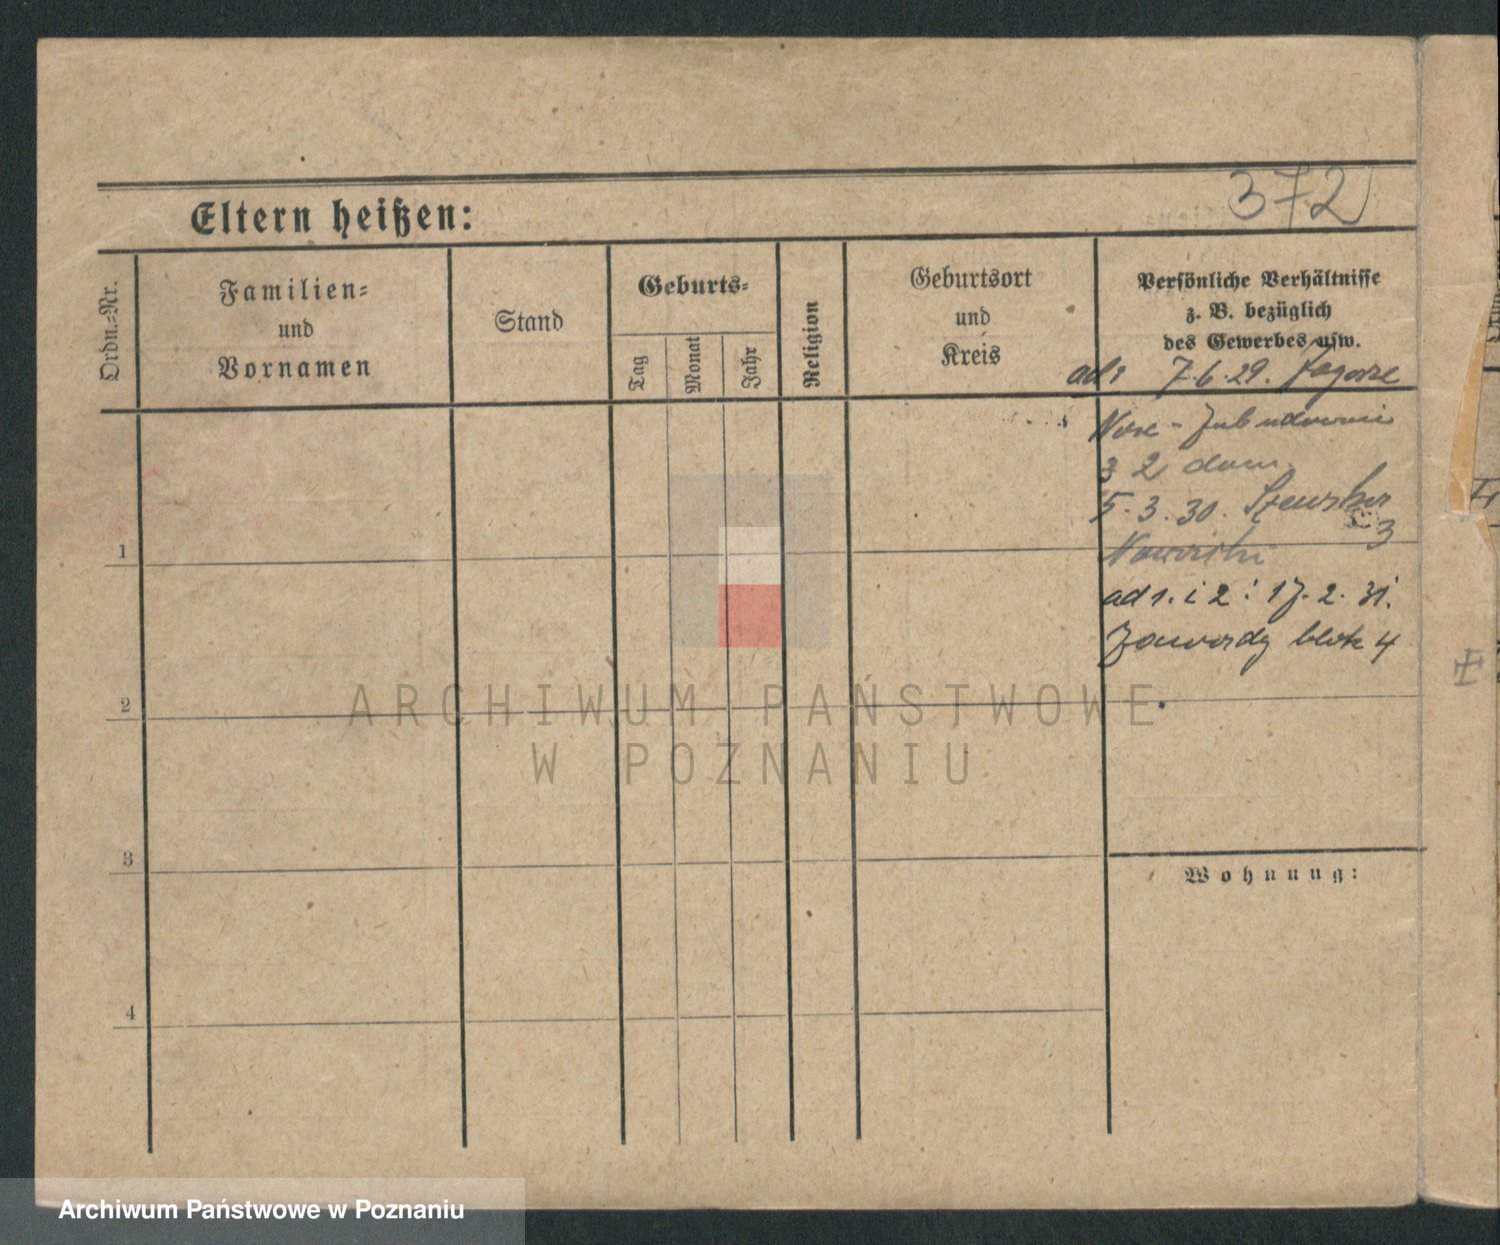 372
Eltern heißen:
Ordn.-Nr.
Familien-
und
Vornamen
Stand
Geburts-
Tag
Monat
Jahr
Religion
Geburtsort
und
Kreis
Persönliche Verhältnisse
z. B. bezüglich
des Gewerbes usw.
ad 1 7.6.29.
3 2 dom
5.3.30.
3
1
ad 1. i 2: 17.2.31.
Zawardy blok 4
2
3
Wohnung:
4
ARCHIWUM PAŃSTWOWE
W POZNANIU
Archiwum Państwowe w Poznaniu